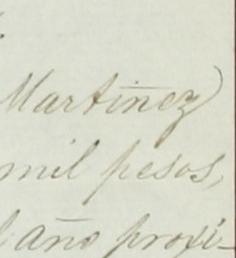 Martinez)
mil pesos,
l año proxi-